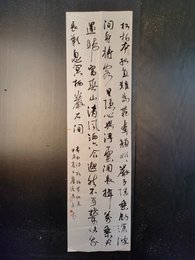 松柏本孤直難為桃李顏昭昭嚴子陵垂釣滄波
間身將客星隱心與浮雲閒長揖萬乘君
還歸富春山清風灑六合邈然不可攀使我
長歎息冥栖巖石間